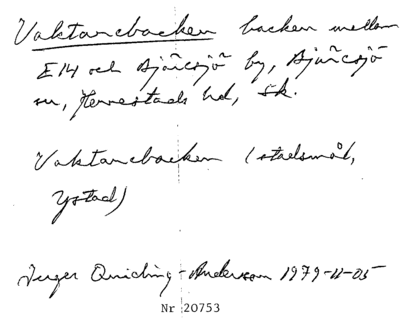 Vaktarebacken backen mellan
E14 och Bjäresjö by, Bjäresjö
sn, Herrestads hd, Sk.
Vaktarebacken (stadsmål,
Ystad)
Inger Quiding-Anderson 1979-11-05
Nr 20753